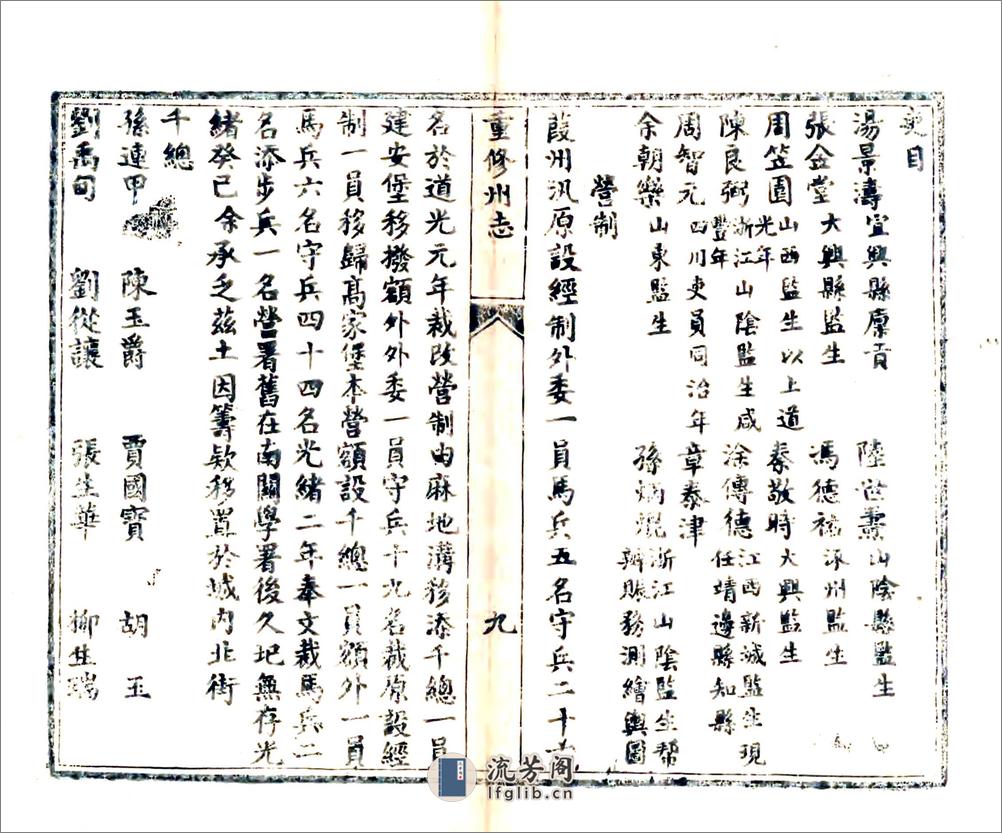 吏目
湯景濤宜興縣廩貢　陸世燾山陰縣監生
張金堂大興縣監生　馮德福涿州監生
周笠園山西監生以上道光年　秦敬時大興監生
陳良弼浙江山陰監生咸豐年　涂傳德江西新城監生現任靖邊縣知縣
周智元四川吏員同治年　章泰津
余朝樂山東監生　孫炳焜浙江山陰監生幫辦賑務測繪輿圖
營制
葭州汛原設經制外委一員馬兵五名守兵二十
重修州志　九
名於道光元年裁改營制由麻地溝移添千總一員
建安堡移撥額外外委一員守兵十九名裁原設經
制一員移歸高家堡本營額設千總一員額外一員
馬兵六名守兵四十四名光緒二年奉文裁馬兵二
名添步兵一名營署舊在南關學署後久圮無存光
緒癸巳余承乏茲土因籌款移置於城內北街
千總
孫連甲　陳玉爵　賈國寶　胡玉
劉禹甸　劉從讓　張生華　柳生瑞
流芳閣
lfglib.cn